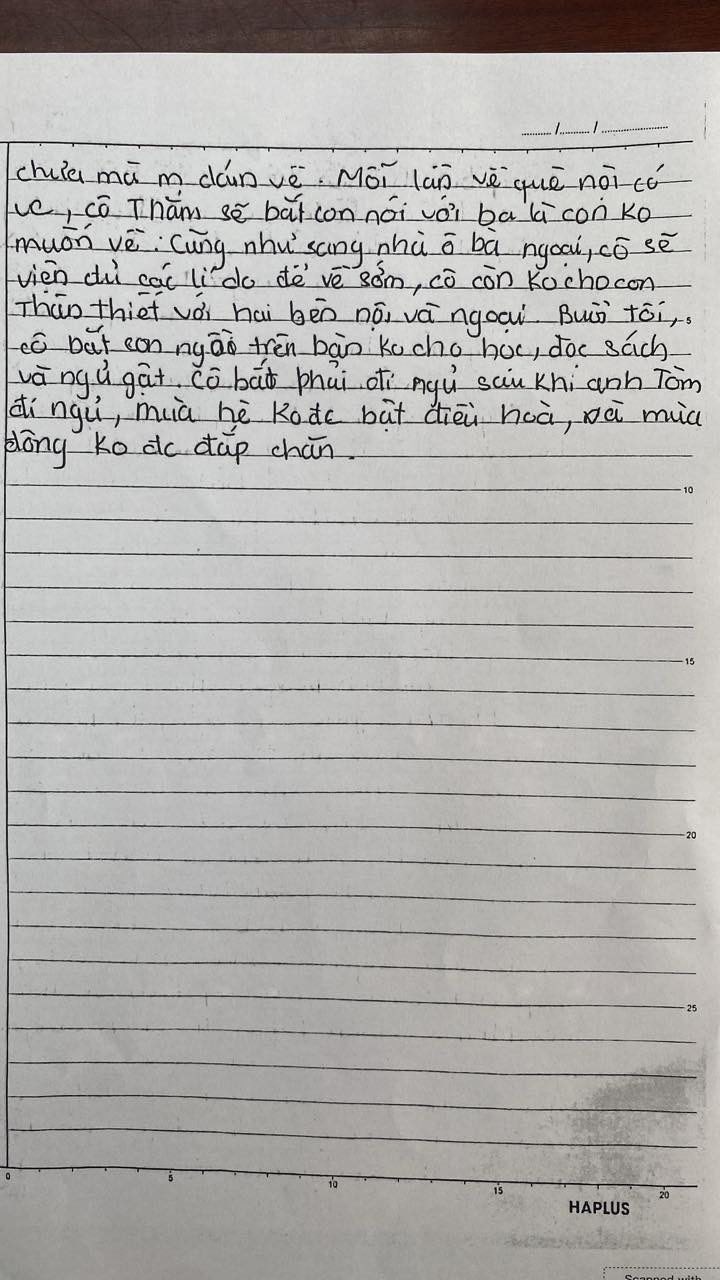 ........../........../....................
chưa mà m dám về. Mỗi lần về quê nội có
vc, cô Thắm sẽ bắt con nói với ba là con ko
muốn về. Cũng như sang nhà ô bà ngoại, cô sẽ
viện đủ các lí do để về sớm, cô còn ko cho con
Thân thiết với hai bên nội và ngoại. Buổi tối,
cô bắt con ngồi trên bàn ko cho học, đọc sách
và ngủ gật. Cô bắt phải đi ngủ sau khi anh Tâm
đi ngủ, mùa hè ko đc bật điều hoà, và mùa
đông ko đc đắp chăn.
10
15
20
25
0 5 10 15 20
HAPLUS
Scanned with